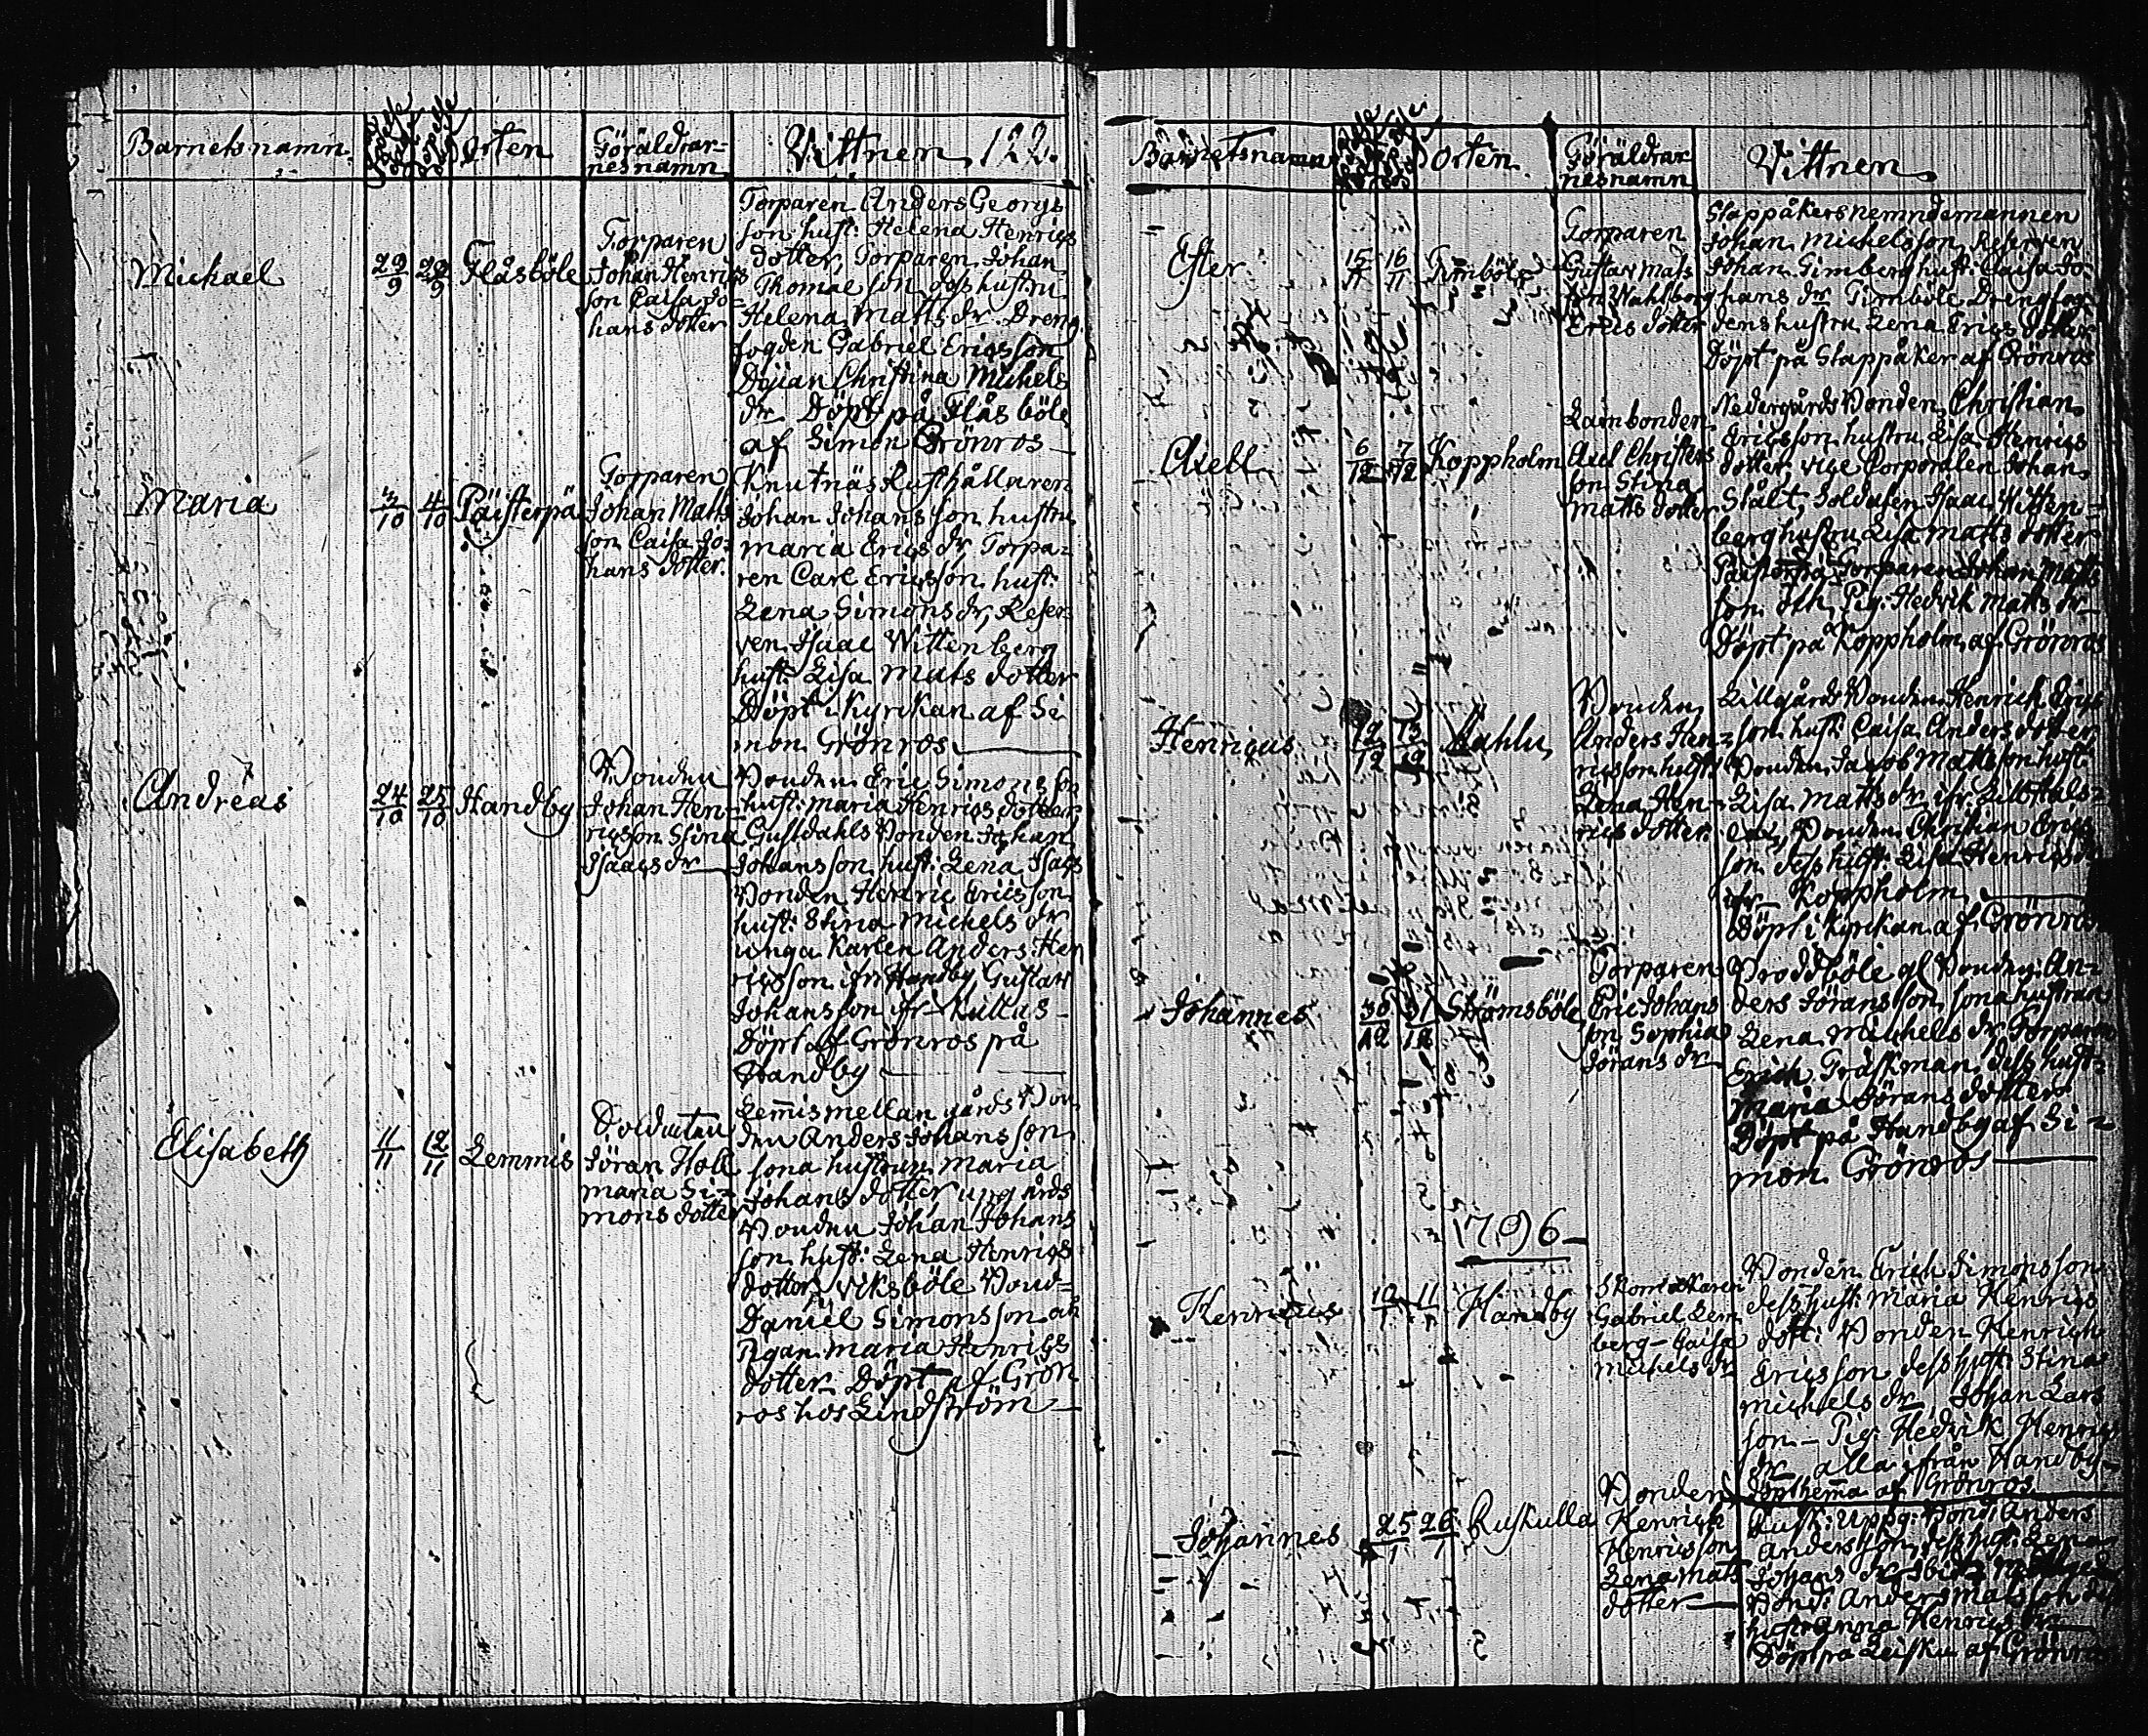 Barnets namn. Orten Föräldrar=
nes namn Vittnen 122.
Michael 29/9 29/9 Flåsböle
Torparen
Johan Henrics
son Caisa Jo=
hans dotter
Torparen Anders Georgs
son hust: Helena Henrics
dotter, Torparen Johan
Thomae son dess hustru
Helena Matts dr Dreng
fogden Gabriel Ericsson
Christina Michels
dr Döpt på Flåsböle
af Simon Grönros
Maria 3/10 4/10 Päisterpä
Torparen
Johan Matts
son Caisa Jo=
hans dotter.
Knutnäs Rusthållaren
Johan Johansson hustru
Maria Erics dr, Torpa=
ren Carl Ericsson hust:
Lena Simons dr, Reser=
ven Isaac Wittenberg
hust: Lisa Mats dotter
Döpt i Kyrkan af Si
mon Grönros
Andreas 24/10 25/10 Handby
Bonden
Johan Hen=
ricsson Stina
Isaacs dr
Bonden Eric Simonsson
hust: Maria Henrics dotter,
Gustdahls Bonden Johan
Johansson hust: Lena Isacs
Bonden Hendric Ericsson
hust: Stina Michels dr
unga Karlen Anders Hen
ricsson ifr Handby Gustav
Johansson ifr Kullas
Döpt af Grönros på
Handby
Elisabeth 11/11 12/11 Lemmis
Soldaten
Jöran Holl
Maria Si=
mons dotter
Lemmis mellangårds Bon
den Anders Johansson
sona hustrun Maria
Johans dotter uppgårds
Bonden Johan Johans
son hust: Lena Henrics
dotter, Viksböle Bond=
Daniel Simonsson ok
Pigan Maria Henrics
dotter Döpt af Grön
ros hos Lindström
Barnetsnamn Orten Föräldrar
nes namn Vittnen
Ester 15/11 16/11 Timböle
Torparen
Gustav Mats
son Wahlborg
Erics dotter
Slappåkers nemndemannen
Johan Michelsson, Reserven
Johan Timberg hust: Caisa Jo=
hans dr Timböle Drengfog
dens hustru Lena Erics dotter
Döpt på Slappåker af Grönros
Axell 6/12 7/12 Koppholm
Lambonden
Axel Christers
son Stina
Matts dotter
Nedergårds Bonden Christian
Ericsson hustru Lisa Henrics
dotter vice Corporalen Johan
Stålt, Soldaten Isaac Witten=
berg hustru Lisa Matts dotter
Päisterpä Torparen Johan Matts
son och Pig: Hedvik Matts dr
Döpt på Koppholm af Grönros
Henricus 12/12 13/12 Mahlu
Bonden
Anders Hen=
ricsson hust:
Lena Hen=
rics dotter
Lillgårds Bonden Henrich Erics
son hust: Caisa Anders dotter
Bonden Jacob Mattsson hust
Lisa Matts dr ifr
Bonden Christian Erics
son dess hust: Lisa Henrics
ifr Koppholm
Döpt i Kyrkan af Grönros
Johannes 30/12 31/12 Strömsböle
Torparen
Eric Johans
son Sophia
Jörans dr
Broddböle gl Bonden An=
ders Jöransson sonahustran
Lena Michels dr, Torparen
Erich Träskman, dess hust=
Maria Jörans dotter
Döpt på Handby af Si=
mon Grönros
1796
Henricus 10/1 11/1 Handby
Skomakaren
Gabriel Lem
berg Caisa
Michels dr
Bonden Erich Simonsson
dess hust: Maria Henrics
dott: Bonden Henrich
Ericsson dess hust: Stina
Michels dr, Johan Lars
son Pig: Hedvik Henrics
dr alla ifrån Handby
Döpt hemma af Grönros
Johannes 25/1 26/1 Ruskulla
Bonden
Henrich
Henricsson
Lena Mats
dotter
Rusk: Uppg: Bond: Anders
Andersson, dess hust: Lena
Johans dr
Bond: Anders Matsson dess
hustr Anna Henrics dr
Döpt på Leisku af Grönros